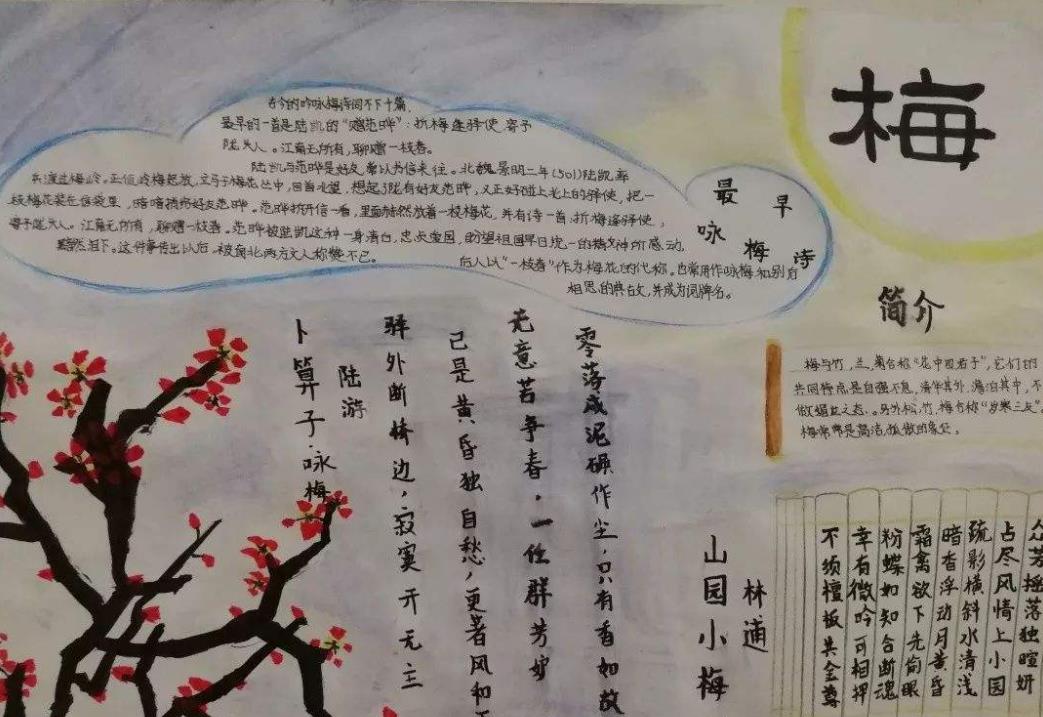 梅
古今的吟咏梅诗词不下十篇，
最早的一首是陆凯的“赠范晔”：折梅逢驿使，寄予
陇头人。江南无所有，聊赠一枝春。
陆凯与范晔是好友，常以书信来往。北魏景明二年(501)陆凯率
兵渡过梅岭。正值岭梅怒放，立马于梅花丛中，回首北望，想起陇有好友范晔，又正好碰上北上的驿使，把一
枝梅花装在信袋里，暗暗捎给好友范晔。范晔拆开信一看，里面赫然放着一枝梅花，并有诗一首，折梅逢驿使，
寄予陇头人。江南无所有，聊赠一枝春。范晔被陆凯这种一身清白，忠贞爱国，盼望祖国早日统一的精神所感动，
黯然泪下。这件事传出以后，被南北两方文人称赞不已。
后人以“一枝春”作为梅花的代称。也常用作咏梅和别后
相思的典故，并成为词牌名。
最早
咏梅诗
简介
梅与竹，兰，菊合称“花中四君子”，它们的
共同特点是自强不息，清华其外，澹泊其中，不
做媚世之态。。另外松，竹，梅合称“岁寒三友”。
梅常常是高洁，孤傲的象征。
卜算子·咏梅
陆游
驿外断桥边，寂寞开无主
已是黄昏独自愁，更著风和
无意苦争春，一任群芳妒
零落成泥碾作尘，只有香如故
山园小梅
林逋
众芳摇落独暄妍
占尽风情上小园
疏影横斜水清浅
暗香浮动月黄昏
霜禽欲下先偷眼
粉蝶如知合断魂
幸有微吟可相狎
不须檀板共金尊